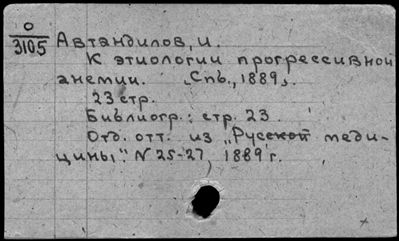 О
3105
Автандилов, И.
К этиологии прогрессивной
анемии. Спб., 1889.
23 стр.
Библиогр.: стр. 23.
Отд. отт. из „Русской меди-
цины". N 25-27, 1889 г.